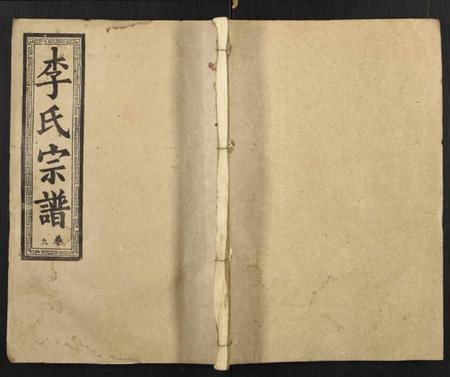 李氏宗譜
卷九